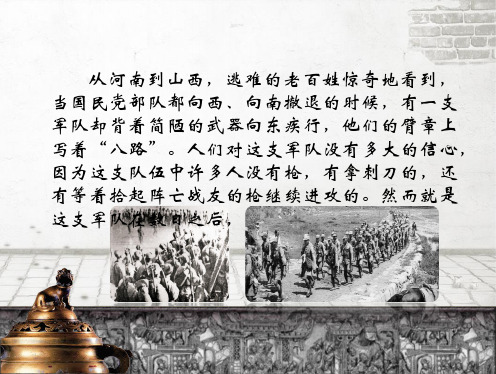 从河南到山西，逃难的老百姓惊奇地看到，
当国民党部队都向西、向南撤退的时候，有一支
军队却背着简陋的武器向东疾行，他们的臂章上
写着“八路”。人们对这支军队没有多大的信心，
因为这支队伍中许多人没有枪，有拿刺刀的，还
有等着拾起阵亡战友的枪继续进攻的。然而就是
这支军队在数日之后，